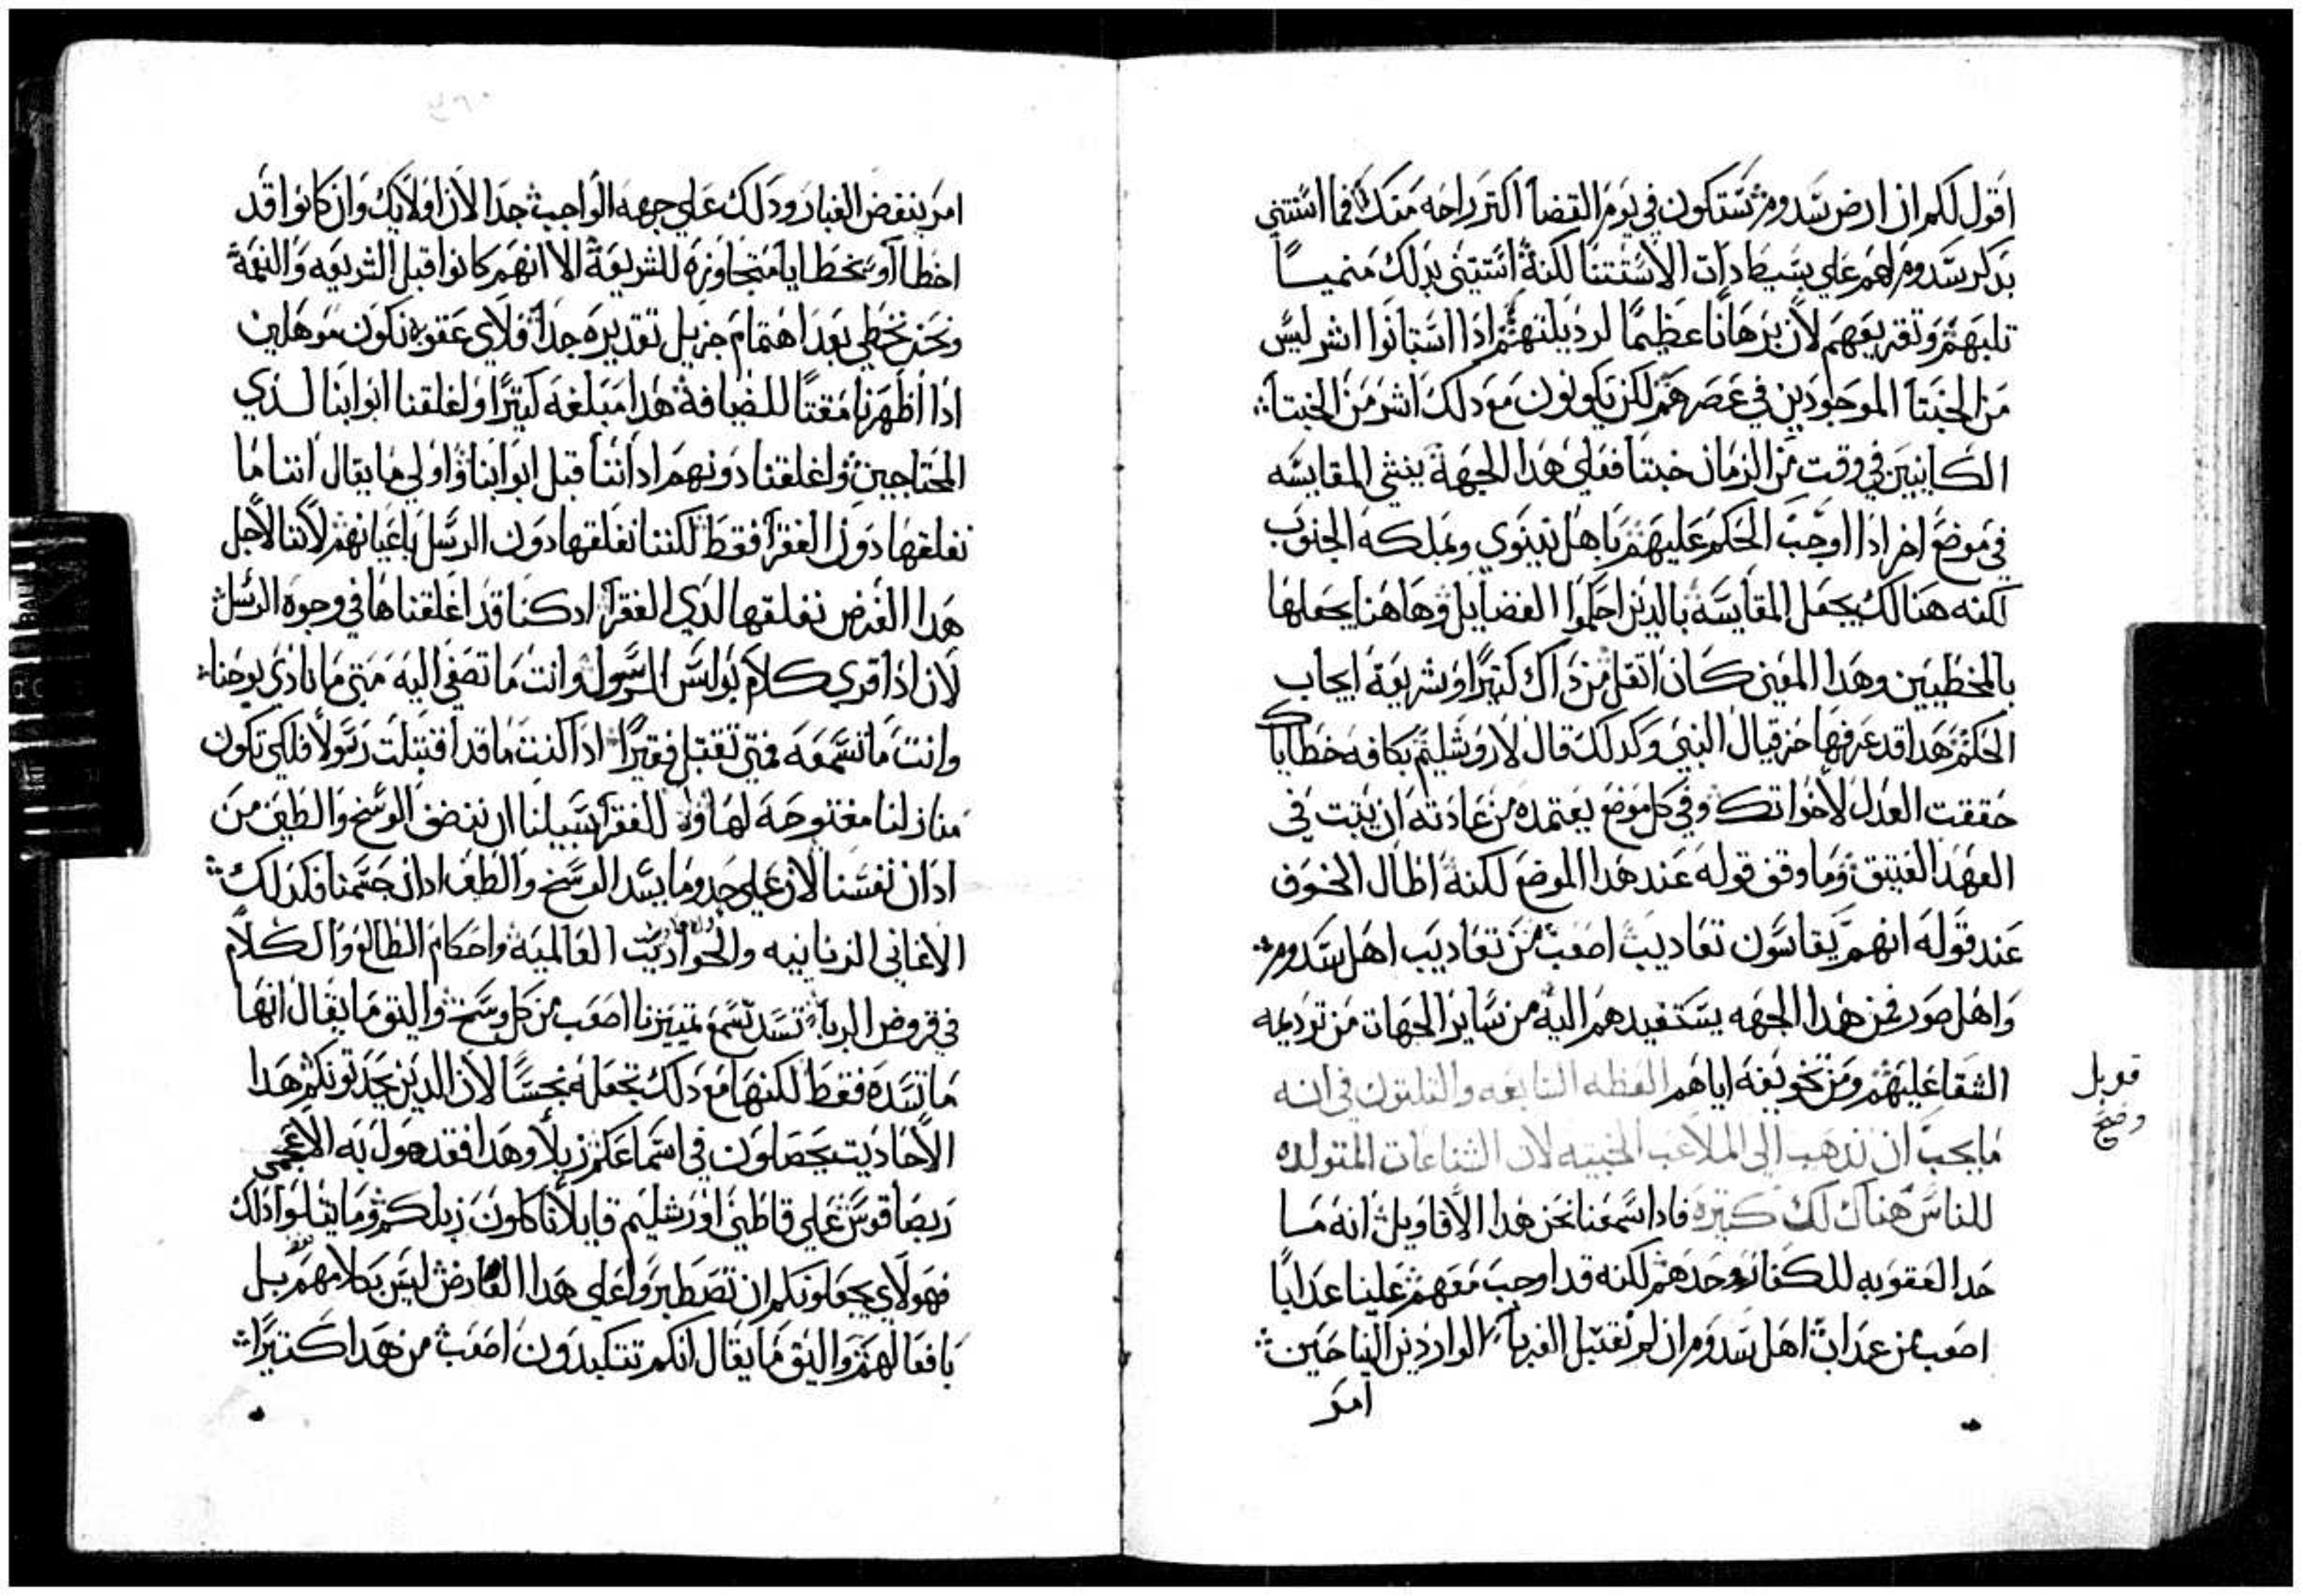 اقول لكم ان ارض سدوم ستكون في يوم القضا اكتر راحه منك فما استتني
بدكر سدوم لهم علي بسيط دات الاستتنا لكنه استتني بدلك منميسا
تلبهم وتقريعهم لان برهانا عظيما لرديلتهم ادا استبانوا اشر ليس
من الخبتا الموجودين في عصرهم لكن يكونون مع دلك اشر من الخبتا
الكاينين في وقت من الزمان خبتا فعلي هدا الجهة ينشي المقايسه
في موضع اخر ادا اوجب الحكم عليهم باهل نينوي وبملكه الجنوب
لكنه هنالك يجعل المقايسة بالدين احكموا الفضايل وهاهنا يجعلها
بالمخطيين وهدا المعني كان اتقل من داك كتيرا وشريعة ايجاب
الحكم هدا قد عرفها حزقيال النبي وكدلك قال لاروشليم بكافه خطاياك
حققت العدل لاخواتك وفي كل موضع يعتمده من عادته ان يتبت في
العهد العتيق وما وقف قوله عند هدا الموضع لكنه اطال الخوف
عند قوله انهم يقاسون تعاديب اصعب من تعاديب اهل سدوم
واهل صور فمن هدا الجهه يستفيدهم اليه من ساير الجهات من ترديه
الشقا عليهم ومن تخويفه اياهم العظه السابعه والتلتون في انه
ما يجب ان ندهب الي الملاعب الخبيته لان الشناعات المتولده
للناس هناك لك كتيره فادا سمعنا نحن هدا الاقاويل انه ما
حدا العقوبه للكفار وحدهم لكنه قد اوجب معهم علينا عدابا
اصعب من عداب اهل سدوم ان لم نقتبل الغربا الواردين الينا حين
امر
قوبل
وصح
امر بنفض الغبار ودلك علي جهه الواجب جدا لان اولايك وان كانوا قد
اخطاوا خطايا متجاوزه للشريعة الا انهم كانوا قبل الشريعه والنعمة
ونحن نخطي بعد اهتمام جزيل تقديره جدا فلاي عقوبه نكون موهلين
ادا اظهرنا مقتا للضيافة هدا مبلغه كتيرا واغلقنا ابوابنا لدي
المحتاجين واغلقنا دونهم اداننا قبل ابوابنا واولي ما يقال اننا ما
نغلقها دون الفقرا فقط لكننا نغلقها دون الرسل باعيانهم لاننا لاجل
هدا الغرض نغلقها لدي الفقرا اد كنا قد اغلقناها في وجوه الرسل
لان ادا قري كلام بولس الرسول وانت ما تصغي اليه متي ما نادي يوحنا
وانت ما تسمعه فمتي تقتبل فقيرا ادا كنت ما قد اقتبلت رسولا فلكي تكون
منازلنا مفتوحة لهاولا للفقرا سبيلنا ان ننفض الوسخ والطين من
ادان نفسنا لان علي حدوما يسد الوسخ والطين ادان جسمنا فكدلك
الاغاني الزنانيه والحواديت العالمية واحكام الطالع والكلام
في قروض الربا تسد تسمع تمييزنا اصعب من كل وسخ واليق ما يقال انها
ما تسده فقط لكنها مع دلك تجعله نجسا لان الدين يحدتونكم هدا
الاحاديت يجعلون في اسماعكم زبلا وهدا فقد هول به الاعجمي
ربصاقوس علي قاطني اورشليم قايلا تاكلون زبلكم وما يتلوا دلك
فهولاي يجعلونكم ان تصطبروا علي هدا العارض ليس بكلامهم بل
بافعالهم واليق ما يقال انكم تتكبدون اصعب من هدا كتيرا